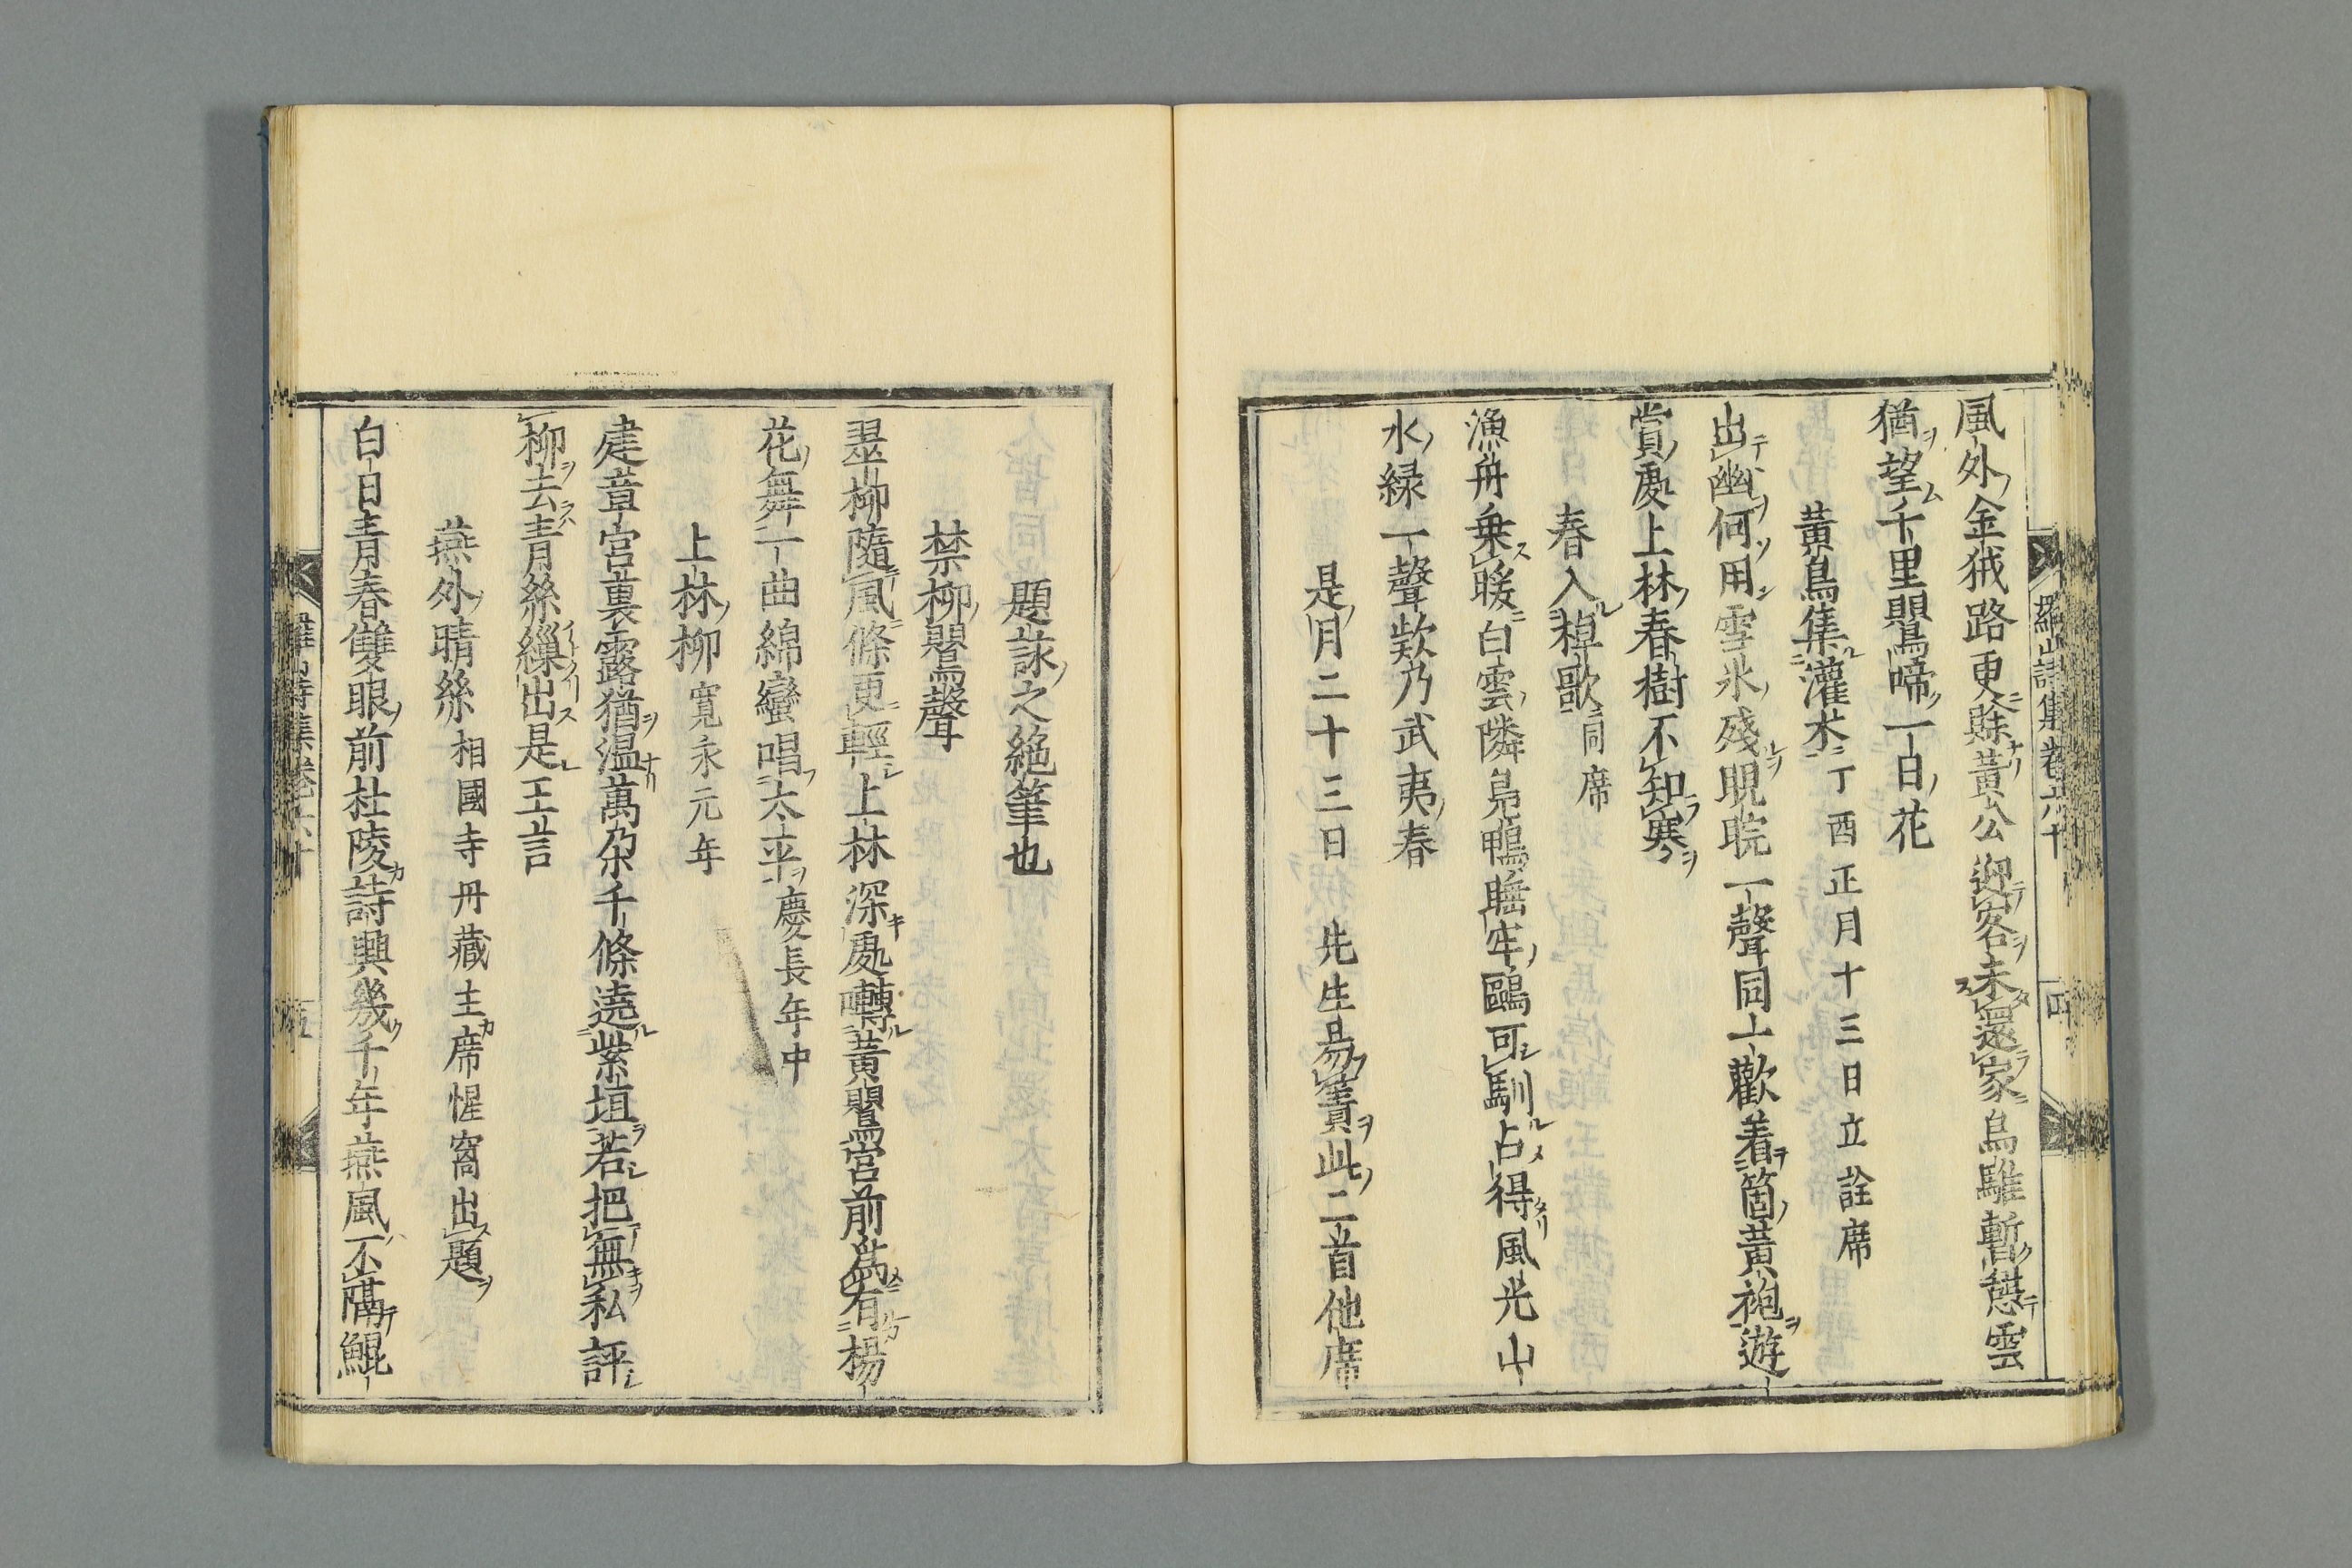 風外金絨路更賖黃公迎客未還家烏騅暫憇雲
猶望千里鸎啼一白花
黃鳥集灌木丁酉正月十三日立詮席
出幽何用雪氷殘睍睆一聲同上歡着箇黃袍遊
賞處上林春樹不知寒
春入棹歌同席
漁舟乗暖白雲隣鳬鴨睡牢鷗可馴占得風光山
水緑一聲欸乃武夷春
是月二十三日 先生易簀此二首他席
題詠之絶筆也
禁柳鸎聲
翠柳隨風條更輕上林深處囀黃鸎宮前爲有楊
花舞一曲綿蠻唱太平慶長年中
上林柳寛永元年
建章宮裏露猶温萬朶千條遶紫垣若把無私評
柳去青絲繅出是王言
燕外晴絲相國寺丹藏主席惺窩出題
白日青春雙眼前杜陵詩興幾千年燕風不隔鯤
羅山詩集卷六十
四
羅山詩集卷六十
五